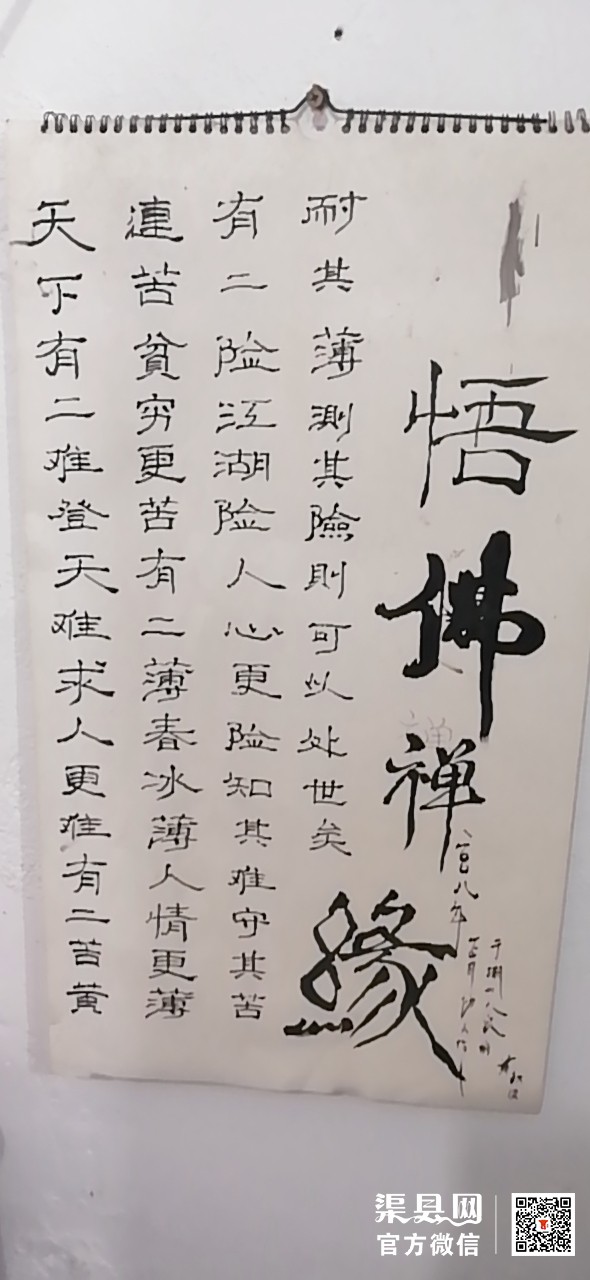 天下有二难登天难求人更难有二苦黄
連苦貧穷更苦有二薄春冰薄人情更薄
有二险江湖险人心更险知其难守其苦
耐其薄測其險則可以处世矣
悟佛禅緣
八年
渠县网
官方微信